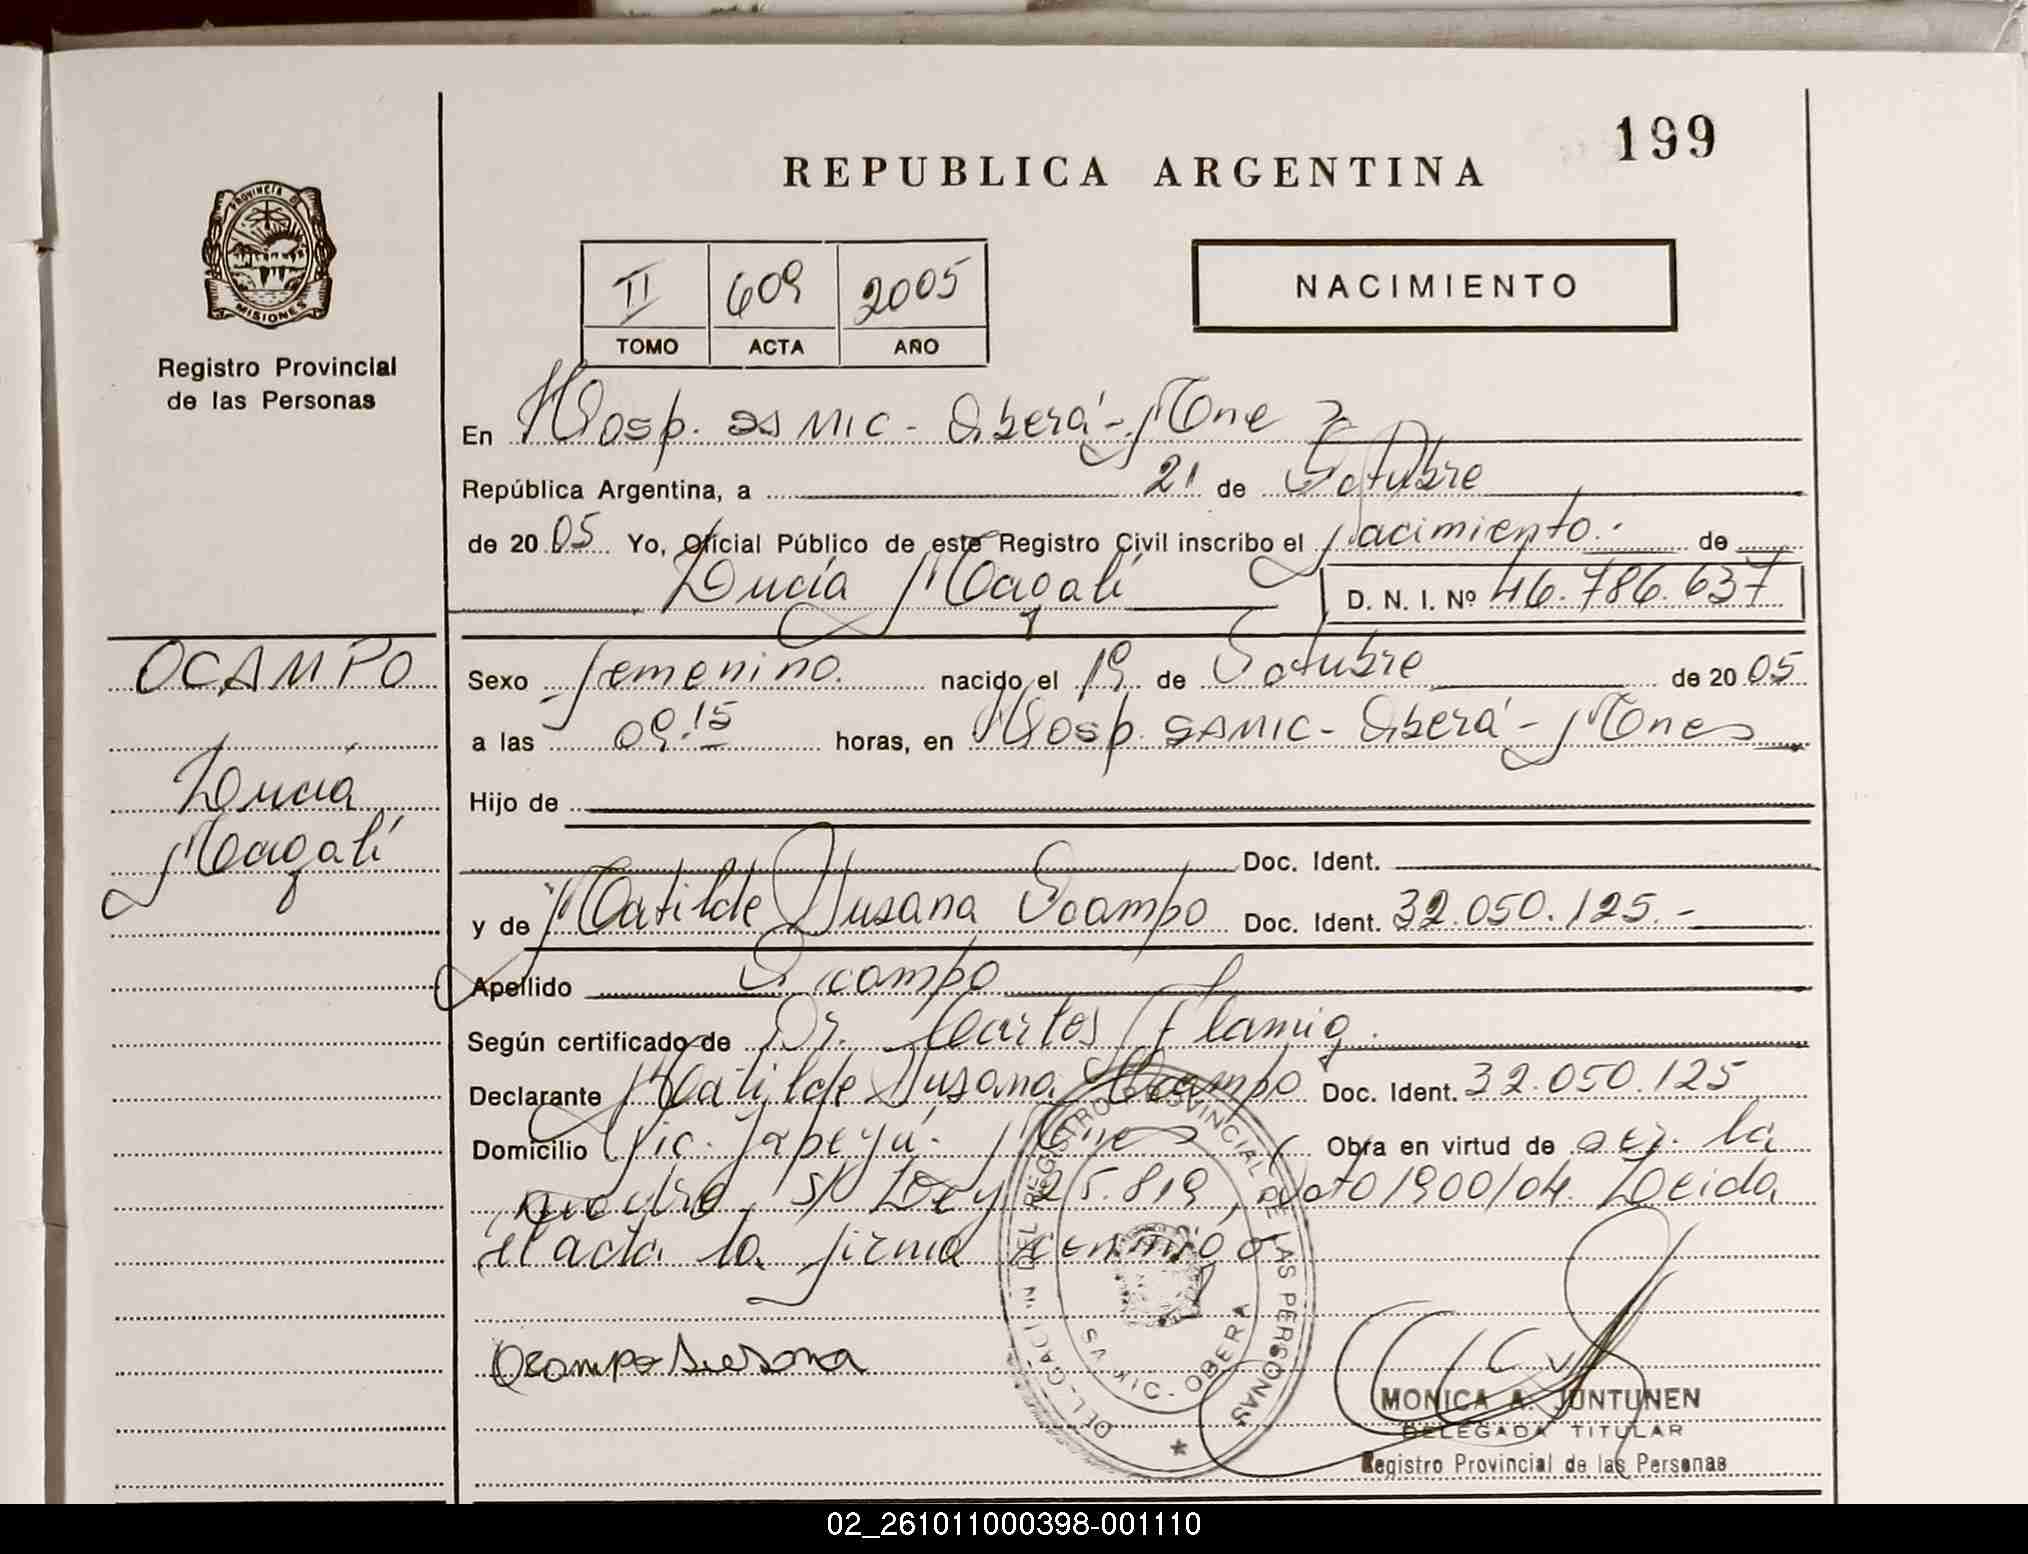 199
REPUBLICA ARGENTINA
PROVINCIA DE MISIONES
Registro Provincial
de las Personas
II 609 2005
TOMO ACTA AÑO
NACIMIENTO
En Hosp. SAMIC - Oberá - Mnes
República Argentina, a 21 de Octubre
de 2005 Yo, Oficial Público de este Registro Civil inscribo el Nacimiento.- de
Lucía Magalí D. N. I. Nº 46.786.637
OCAMPO
Lucía
Magalí
Sexo femenino. nacido el 19 de Octubre de 2005
a las 09.15 horas, en Hosp. SAMIC - Oberá - Mnes
Hijo de
Doc. Ident.
y de Matilde Susana Ocampo Doc. Ident. 32.050.125.-
Apellido Ocampo
Según certificado de Dr. Carlos Flamig.
Declarante Matilde Susana Ocampo Doc. Ident. 32.050.125
Domicilio Pic. Yapeyú - Mnes Obra en virtud de ser la
madre s/ Ley 25.819, 1900/04. Leida
el acta la firma
Ocampo Susana
REGISTRO PROVINCIAL DE LAS PERSONAS
OBERA
MONICA A. JUNTUNEN
DELEGADA TITULAR
Registro Provincial de las Personas
02_261011000398-001110